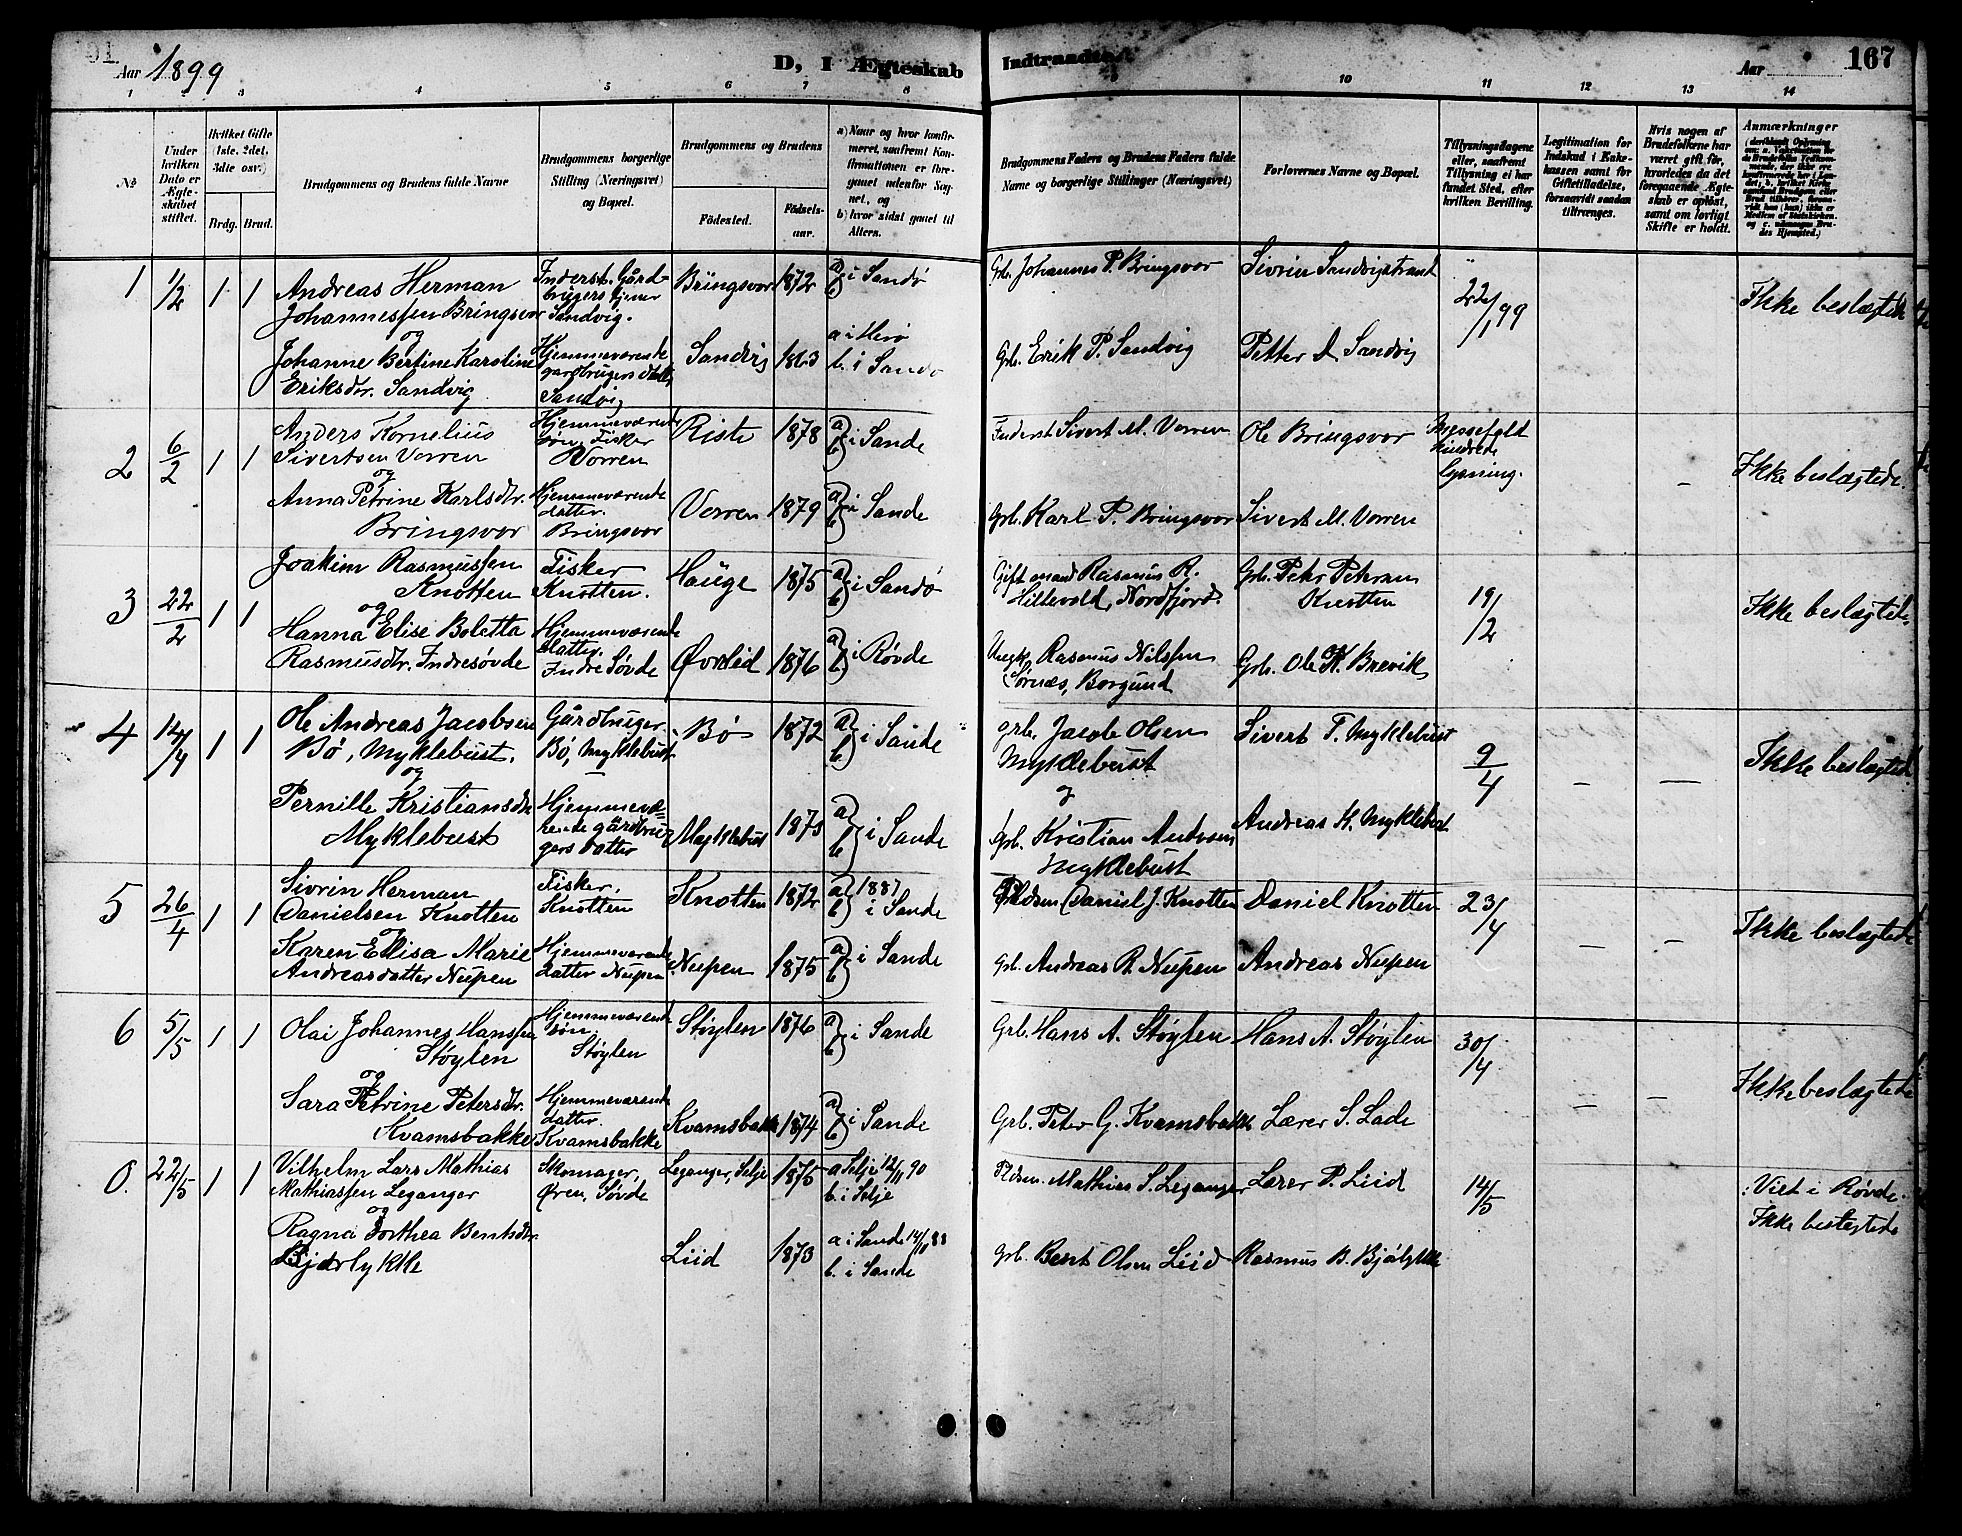 Aar 1899
D, I Ægteskab
Indtraadte.
Aar
167
1 3 4 5 6 7 8 10 11 12 13 14
No
Under hvilken Dato er Ægteskabet stiftet.
Hvilket Gifte (1ste, 2det, 3die osv.)
Brdg. Brud.
Brudgommens og Brudens fulde Navne
Brudgommens borgerlige Stilling (Næringsvei) og Bopæl.
Brudgommens og Brudens
Födested.
Födselsaar.
a) Naar og hvor konfirmeret, saafremt Konfirmationen er foregaaet udenfor Sognet, og
b) hvor sidst gaaet til Alters.
Brudgommens Faders og Brudens Faders fulde Navne og borgerlige Stillinger (Næringsvei)
Forlovernes Navne og Bopæl.
Tillysningsdagene eller, saafremt Tillysning ei har fundet Sted, efter hvilken Bevilling.
Legitimation for Indskud i Enkekassen samt for Giftetilladelse, forsaavidt saadan tiltrænges.
Hvis nogen af Brudefolkene har været gift för, hvorledes da det foregaaende Ægteskab er oplöst, samt om lovligt Skifte er holdt.
Anmærkninger
1 1/2 1 1
Andreas Herman
Johannessen Bringsvor
og
Johanne Bertine Karoline
Eriksdr. Sandvig
Inderst. Gård-
brugers
Sandvig.
Hjemmeværende
gårdbrugers datter
Sandvig
Bringsvor 1872 a b i Sandø
Sandvig 1863 a i Herø
b. i Sandø
Grb. Johannes P. Bringsvor
Grb. Erik P. Sandvig
Sivrin Sandvigstrand
Petter D Sandvig
22/1 99
Ikke beslægtede
2 6/2 1 1
Anders Kornelius
Sivertsen Vorren
og
Anna Petrine Karlsdtr.
Bringsvor
Hjemmeværende
søn, Fisker
Vorren
Hjemmeværende
datter.
Bringsvor
Riste 1878 a b i Sande
Vorren 1879 a b i Sande
Inderst Sivert M. Vorren
Grb. Karl P. Bringsvor
Ole Bringsvor
Sivert M. Vorren
Messefald
hindrede
lysning.
Ikke beslægtede.
3 22/2 1 1
Joakim Rasmussen
Knotten
og
Hanna Elise Boletta
Rasmusdtr. Indresøvde
Fisker
Knotten.
Hjemmeværende
datter.
Indre Søvde
Hauge 1875 a b i Sandø
Øvrelid 1876 a b. i Røvde
Gift mand Rasmus R.
Hillevold, Nordfjord.
Ungk. Rasmus Nilssen
Sørnæs, Borgund
Grb. Petr Petersen
Knotten
Grb. Ole K. Brevik
19/2
Ikke beslægtede
4 14/4 1 1
Ole Andreas Jacobsen
Bø, Myklebust.
og
Pernille Kristiansdtr
Myklebust
Gårdbruger.
Bø, Myklebust
Hjemmevæ-
rende gårdbru-
gers datter
Bø 1872 a b i Sande
Myklebust 1875 a b i Sande
grb. Jacob Olsen
Myklebust
og
Grb. Kristian Andersen
Myklebust
Sivert T. Myklebust
Andreas K. Myklebust
9/4
Ikke beslægtede
5 26/4 1 1
Sivrin Herman
Danielsen Knotten
og
Karen Elisa Marie
Andreasdatter Nupen
Fisker.
Knotten
Hjemmeværende
datter Nupen
Knotten 1872 a 1887
b i Sande
Nupen 1875 a b i Sande
Pldsm. Daniel J. Knotten
Grb. Andreas R. Nupen
Daniel Knotten
Andreas Nupen
23/4
Ikke beslægtede
6 5/5 1 1
Olai Johannes Hanssen
Støylen
og
Sara Petrine Petersdtr.
Kvamsbakke
Hjemmeværende
søn.
Støylen
Hjemmeværende
datter.
Kvamsbakke
Støylen 1876 a b i Sande
Kvamsbakke 1874 a b i Sande
Grb. Hans A. Støylen
Grb. Peter G. Kvamsbakke
Hans A. Støylen
Lærer S. Lade
30/4
Ikke beslægtede
0. 22/5 1 1
Vilhelm Lars Mathias
Mathiassen Leganger
og
Ragna Dorthea Bentsdtr.
Bjørlykke
Skomager,
Øren, Søvde
Leganger, Selje 1875 a Selje 12/11 90
b. i Selje
Liid 1873 a i Sande 14/10 88
b. i Sande
Pldsm. Mathias S. Leganger
Grb. Bent Olsen Liid
Lærer P. Liid
Rasmus B. Bjølykke
14/5
: Viet i Røvde.
Ikke beslægtede